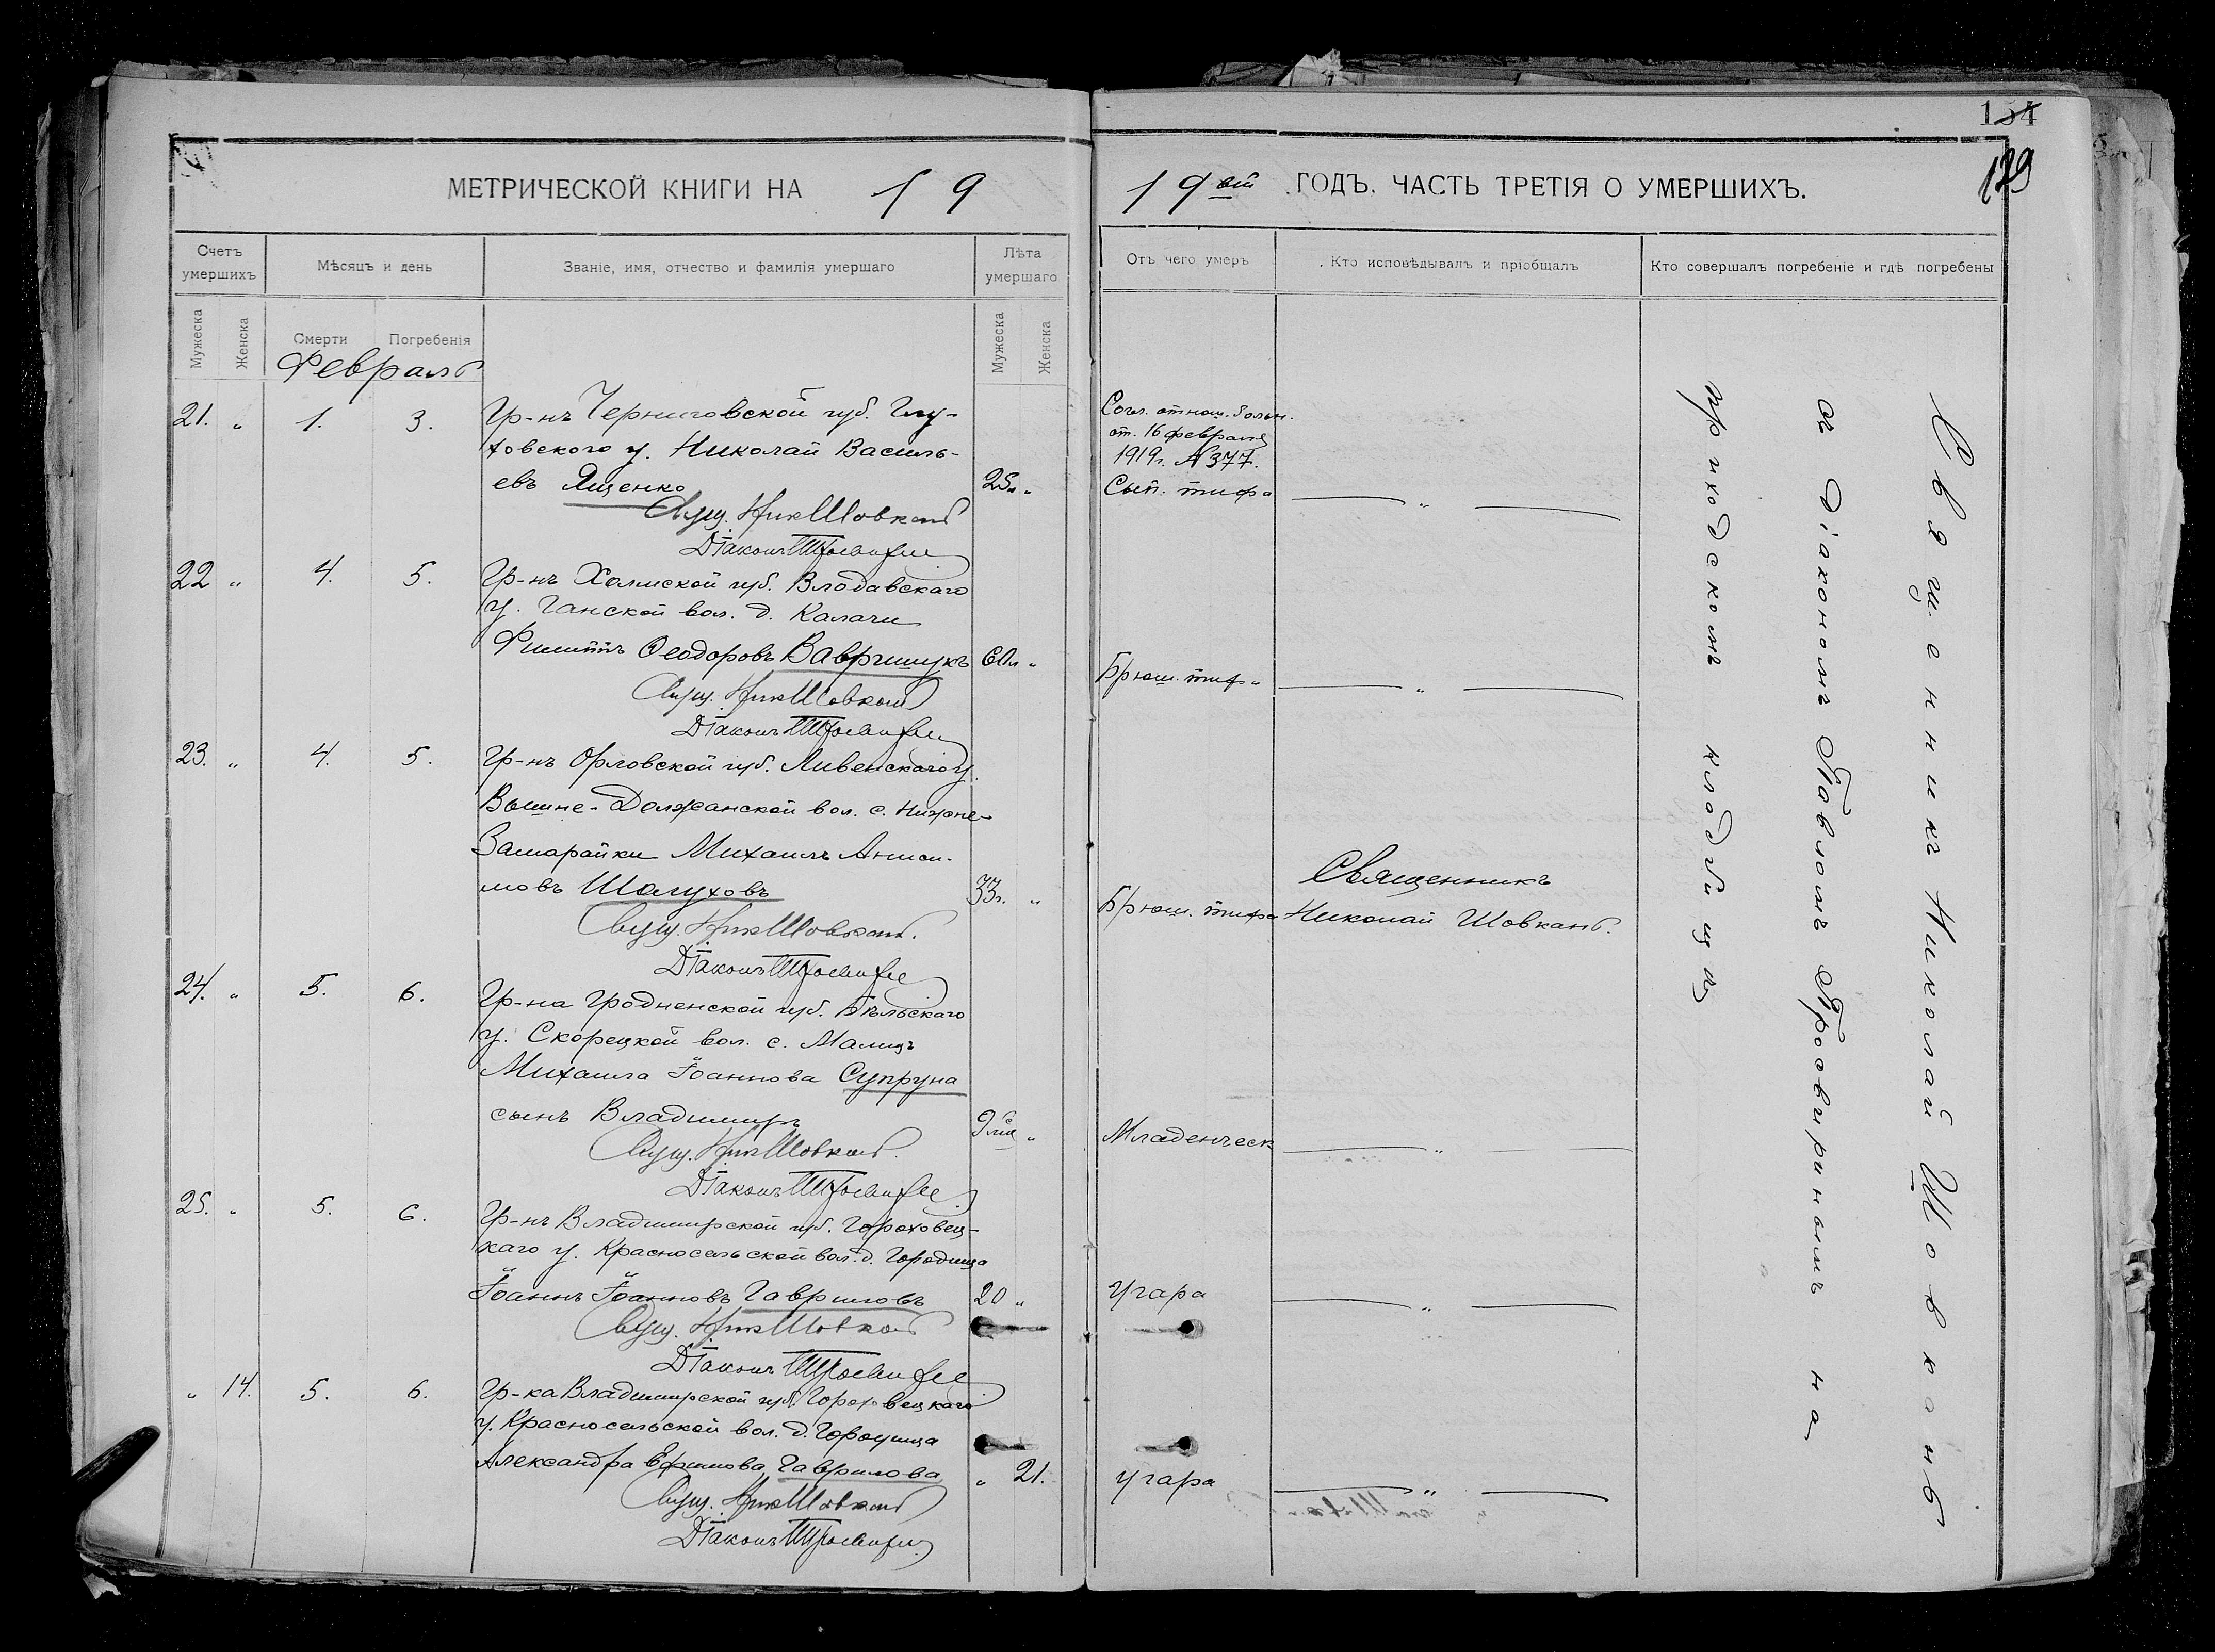 МЕТРИЧЕСКОЙ КНИГИ НА 19
Счетъ умершихъ
Мѣсяцъ и день
Званіе, имя, отчество и фамилія умершаго
Лѣта умершаго
Мужеска
Женска
Смерти
Погребенія
Мужеска
Женска
Февраль
21. „ 1. 3. Гр-нъ Черниговской губ. Глу-
ховского у. Николай Василь-
евъ Ященко 25л „
Свящ. Ник Шовкань
Діаконъ
22 „ 4. 5. Гр-нъ Холмской губ. Влодавскаго
у. Ганской вол. д. Калачи
Филиппъ Ѳеодоровъ Вавришукъ 60л „
Свящ. Ник Шовкань
Діаконъ
23. „ 4. 5. Гр-нъ Орловской губ. Ливенскаго у.
Вышне-Должанской вол. с. Нижне-
Замарайки Михаилъ Аниси-
мовъ Шалуховъ 33г. „
Свящ. Ник Шовкань.
Діаконъ
24. „ 5. 6. Гр-на Гродненской губ. Бѣльскаго
у. Скорецкой вол. с. Малищ
Михаила Іоаннова Супруна
сынъ Владимиръ 9 мѣс „
Свящ. Ник Шовкань.
Діаконъ
25. „ 5. 6. Гр-нъ Владимирской губ. Гороховец-
каго у. Красносельской вол. д. Городища
Іоаннъ Іоанновъ Гавриловъ 20 „
Свящ. Ник Шовкань
Діаконъ
„ 14. 5. 6. Гр-ка Владимирской губ. Гороховецкаго
у. Красносельской вол. д. Городища
Александра Ефимова Гаврилова „ 21.
Свящ. Ник Шовкань
Діаконъ
134
129
19 ый ГОДЪ. ЧАСТЬ ТРЕТІЯ О УМЕРШИХЪ.
Отъ чего умеръ
Кто исповѣдывалъ и пріобщалъ
Кто совершалъ погребеніе и гдѣ погребены
Согл. отнош. больн.
от. 16 февраля
1919г. № 377.
Сып. тифа „
Брюш. тифа „
Священникъ
Брюш. тифа Николай Шовкань.
Младенческ „
Угара „
Угара „
Священникъ Николай Шовкань
съ Діакономъ Павломъ Просвиринымъ на
приходскомъ кладбищѣ